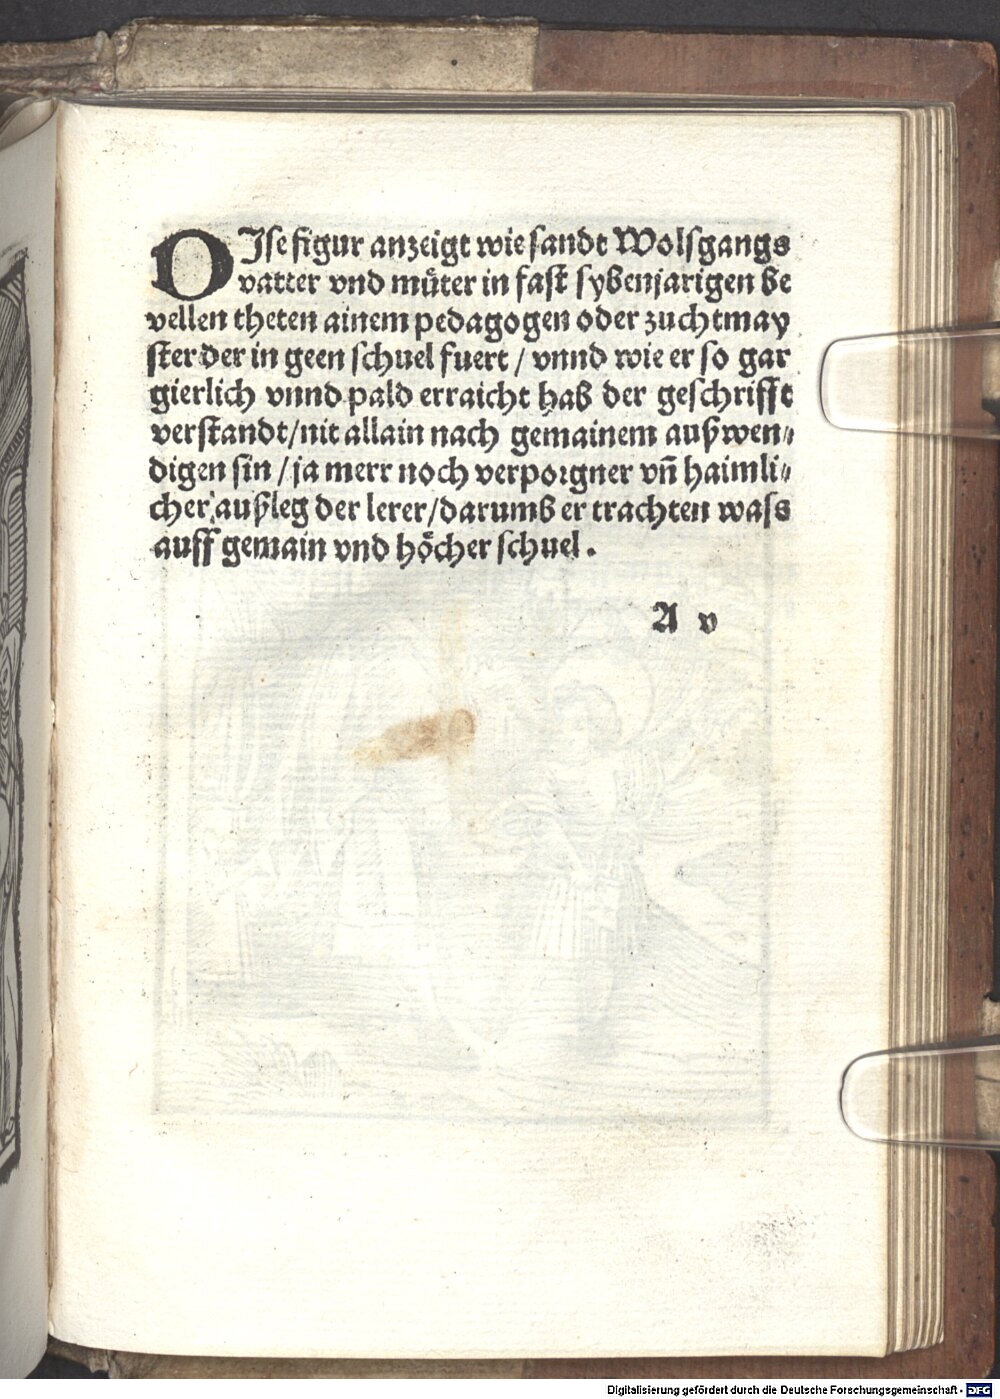 DJse figur anzeigt wie sandt Wolfgangs
vatter vnd müter in fast sybenjarigen be
vellen theten ainem pedagogen oder zuchtmay
ster der in geen schuel fuert / vnnd wie er so gar
gierlich vnnd pald erraicht hab der geschrifft
verstandt / nit allain nach gemainem außwen⸗
digen sin / ja merr noch verporgner vn̄ haimli⸗
cher außleg der lerer / darumb er trachten wass
auff gemain vnd höcher schuel .
A v
Digitalisierung gefördert durch die Deutsche Forschungsgemeinschaft - DFG